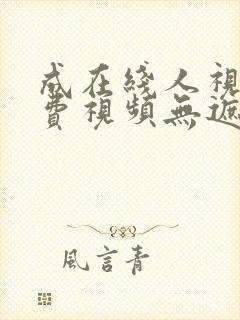 成在綫人視
費視頻無遮
風言青